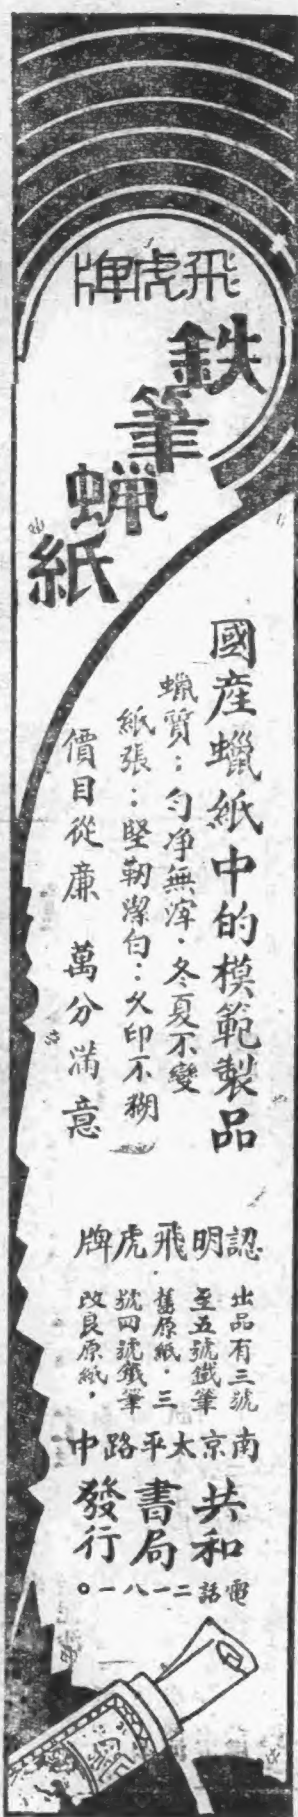 飛虎牌
鉄筆蝋紙
國產蠟紙中的模範製品
蠟質：勻净無滓．冬夏不變
紙張：堅韌潔白：久印不糊
價目從廉　萬分滿意
認明飛虎牌
出品有三號
至五號鐵筆
舊原紙．三
號四號鐵筆
改良原紙，
南京太平路中
共和
書局
發行
電話二一八一。